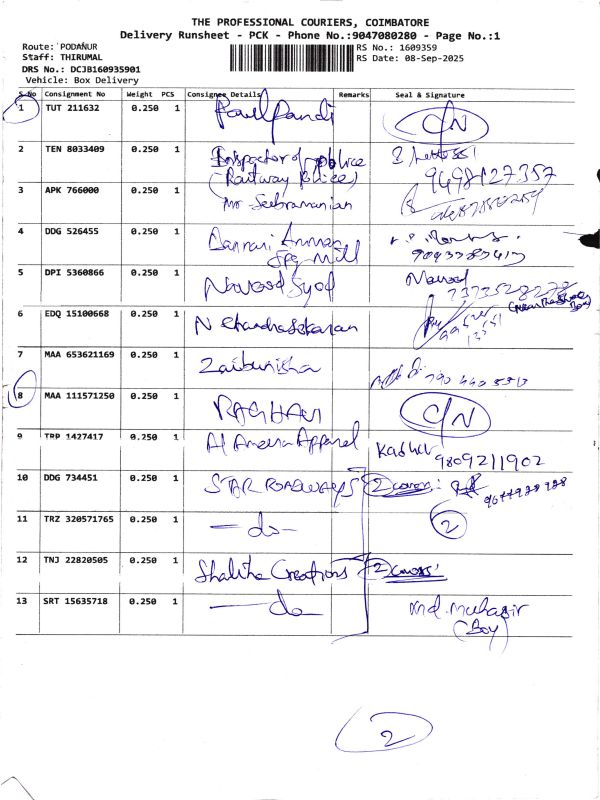 THE PROFESSIONAL COURIERS, COIMBATORE
Delivery Runsheet - PCK - Phone No.:9047080280 - Page No.:1
Route: PODANUR
RS No.: 1609359
Staff: THIRUMAL
RS Date: 08-Sep-2025
DRS No.: DCJB160935901
Vehicle: Box Delivery
S.No Consignment No Weight PCS Consignee Details Remarks Seal & Signature
1 TUT 211632 0.250 1 Paulpandi
2 TEN 8033409 0.250 1 Inspector of police
(Railway police) 9498127357
3 APK 766000 0.250 1 Mr Subramanian
4 DDG 526455 0.250 1 Mill
5 DPI 5360866 0.250 1 Navood Syed
6 EDQ 15100668 0.250 1 N Chandrasekaran
7 MAA 653621169 0.250 1 Zaibunisha
8 MAA 111571250 0.250 1 RAGHAVI
9 TRP 1427417 0.250 1 Al Ameena Apparel Kader
9809211902
10 DDG 734451 0.250 1 STAR ROADWAYS 2
11 TRZ 320571765 0.250 1 -do- 2
12 TNJ 22820505 0.250 1 Creations 2
13 SRT 15635718 0.250 1 -do Md. Mubasir
(Boy)
2